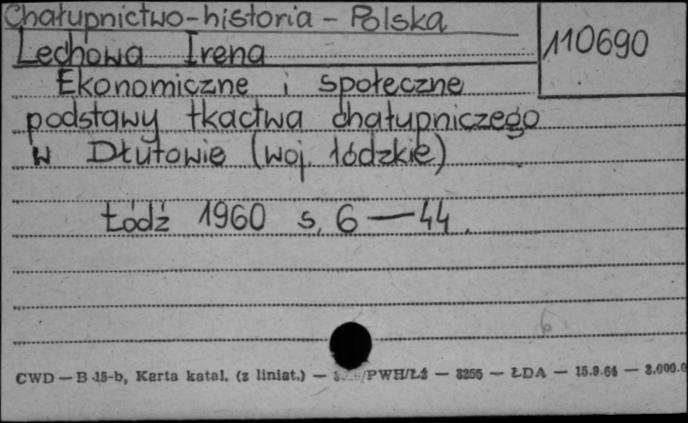 Chałupnictwo-historia - Polska
110690
Lechowa Irena
Ekonomiczne i społeczne
podstawy tkactwa chałupniczego
w Dłutowie (woj. łódzkie)
Łódź 1960 s. 6 — 44.
6
CWD — B 15-b, Karta katal. (z liniat.) — /PWH/Łź — 3255 — ŁDA — 15.9.64 —